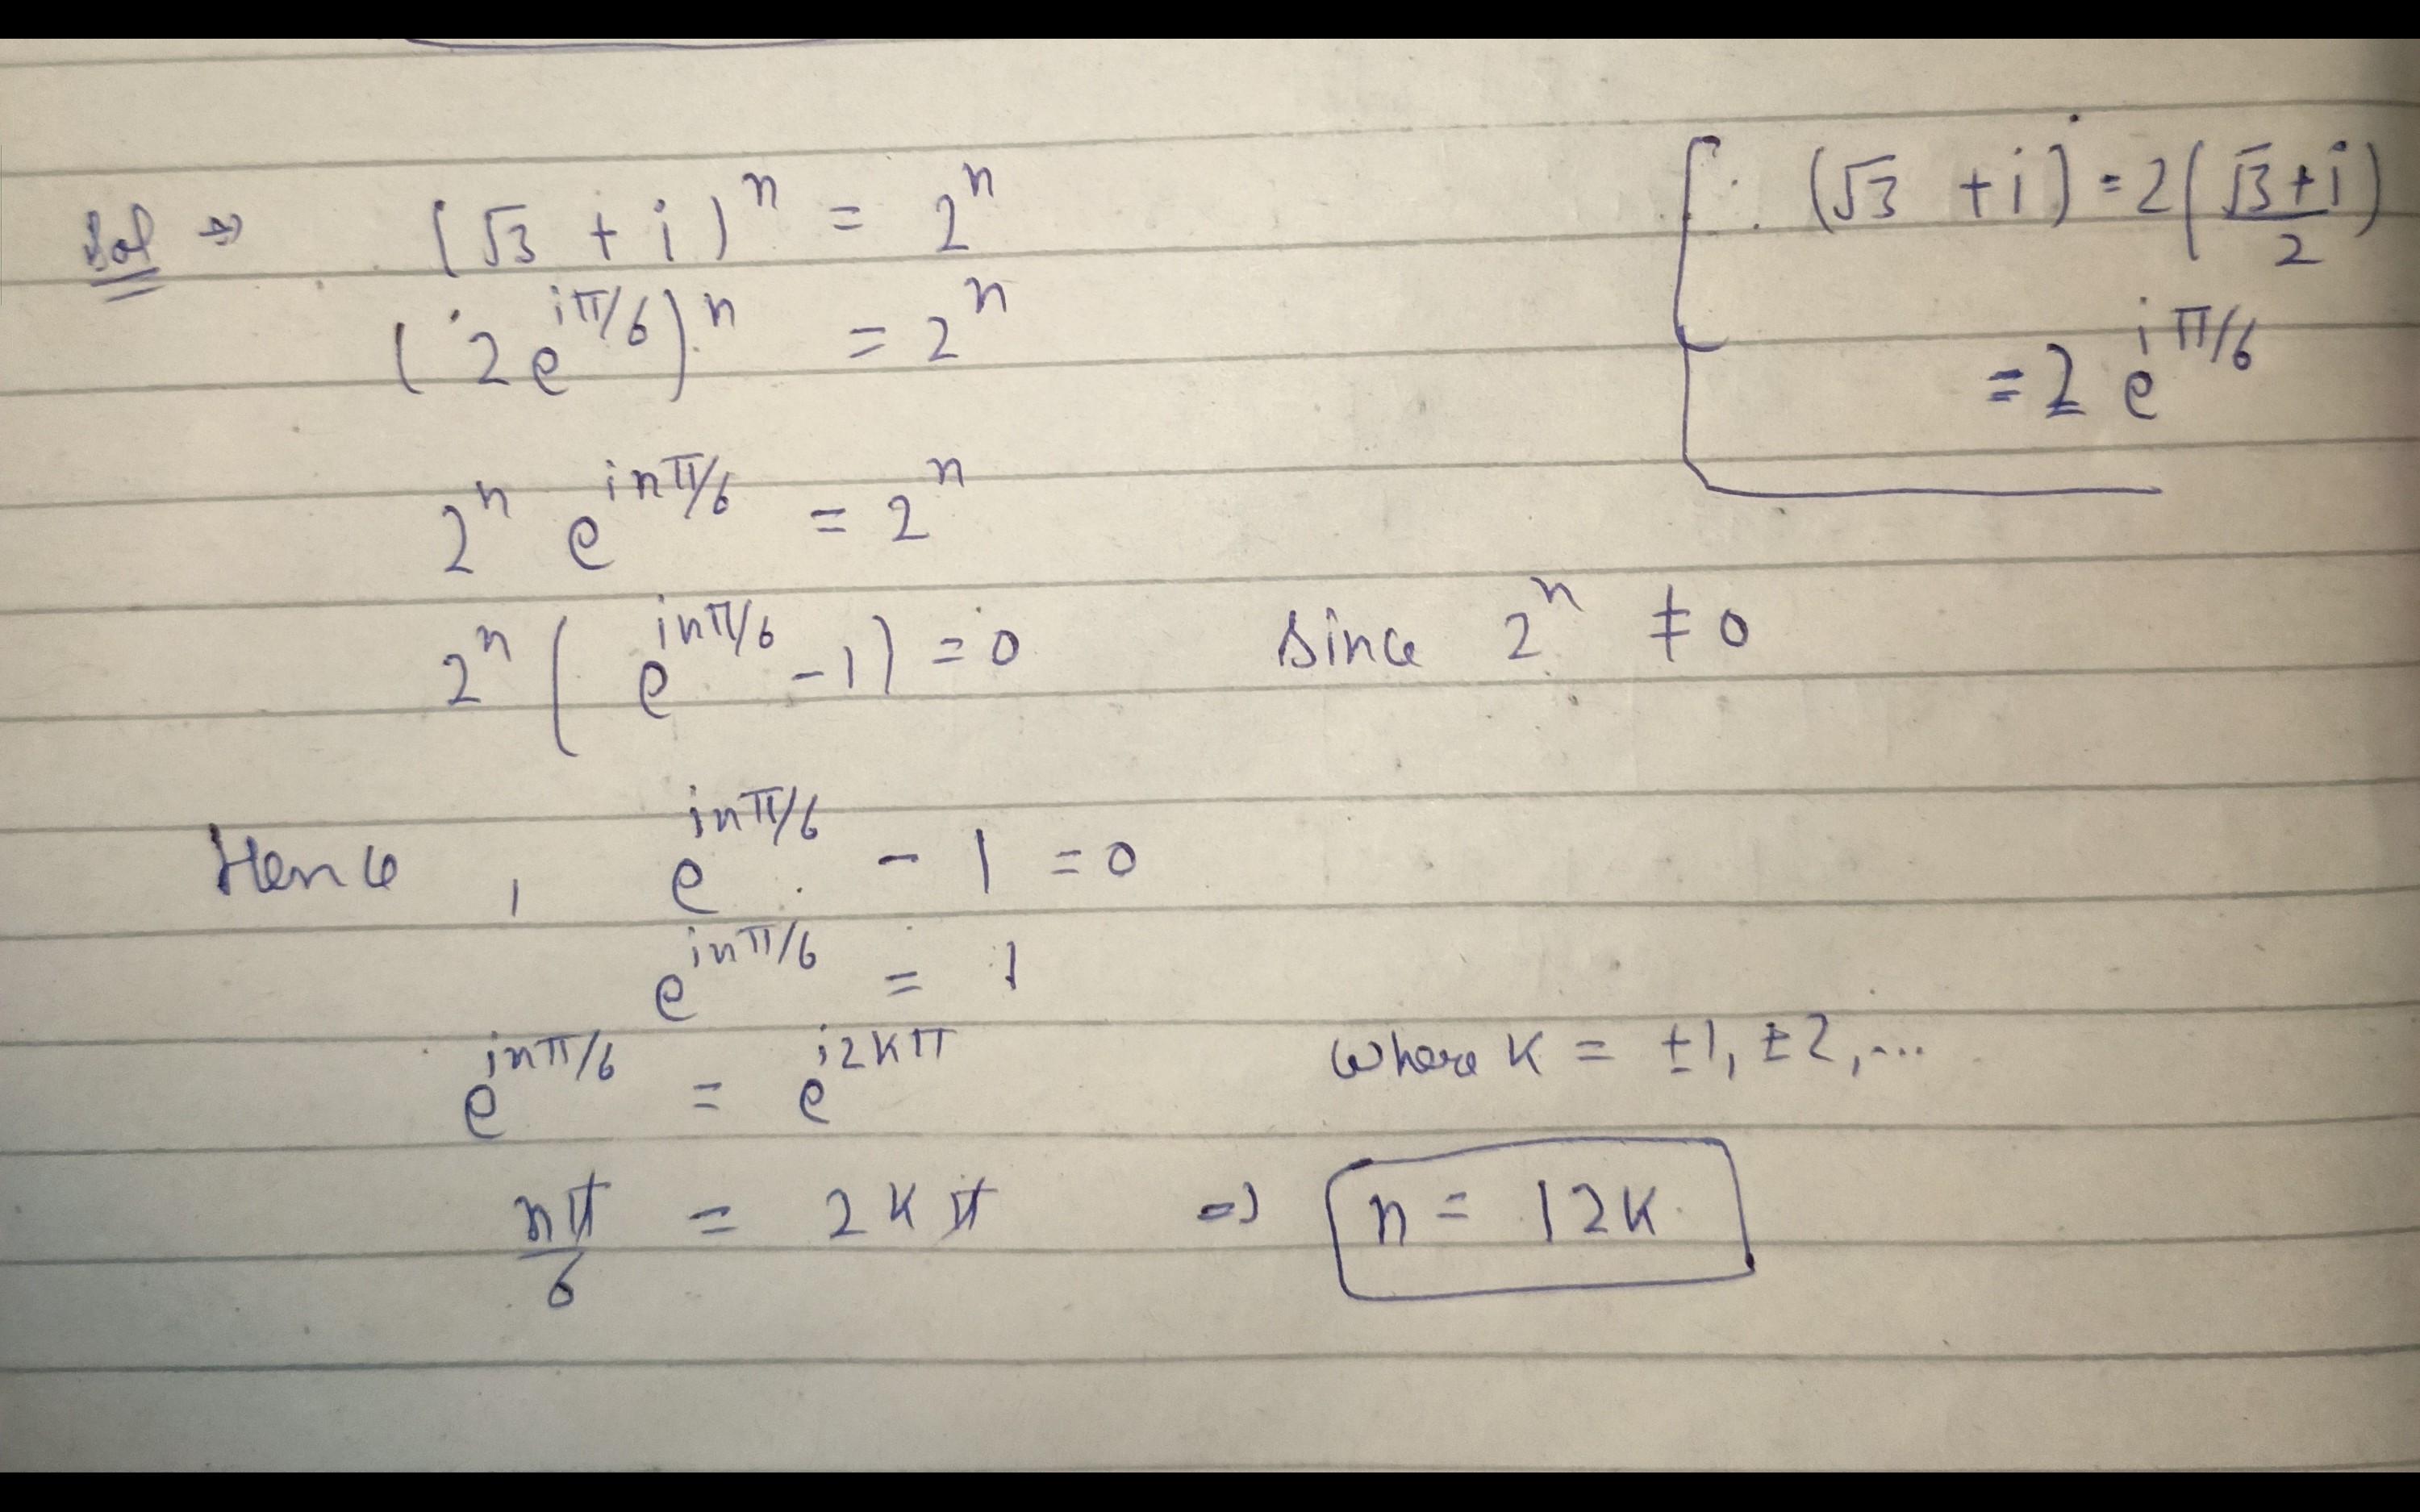 Sol ⇒ (√3 + i)^n = 2^n
[∵ (√3 + i) = 2((√3+i)/2)
(2e^{iπ/6})^n = 2^n
= 2 e^{iπ/6}
2^n e^{inπ/6} = 2^n
2^n (e^{inπ/6} - 1) = 0 Since 2^n ≠ 0
Hence, e^{inπ/6} - 1 = 0
e^{inπ/6} = 1
e^{inπ/6} = e^{i2kπ} where k = ±1, ±2, ...
nπ/6 = 2kπ ⇒ n = 12k